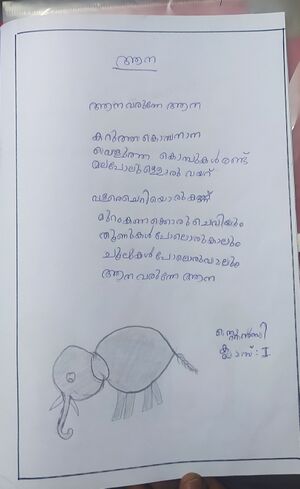 ആന
ആന വരുന്നേ ആന
കറുത്ത കൊമ്പനാന
വെളുത്ത കൊമ്പുകൾ രണ്ട്
മലപോലുള്ളൊരു വയറ്
വളരെചെറിയൊരു കണ്ണ്
മുറംകണക്കൊരു ചെവിയും
തൂണുകൾ പോലൊരുകാലും
ചൂലുകൾ പോലൊരുവാലും
ആന വരുന്നേ ആന
ക്ലാസ് : I